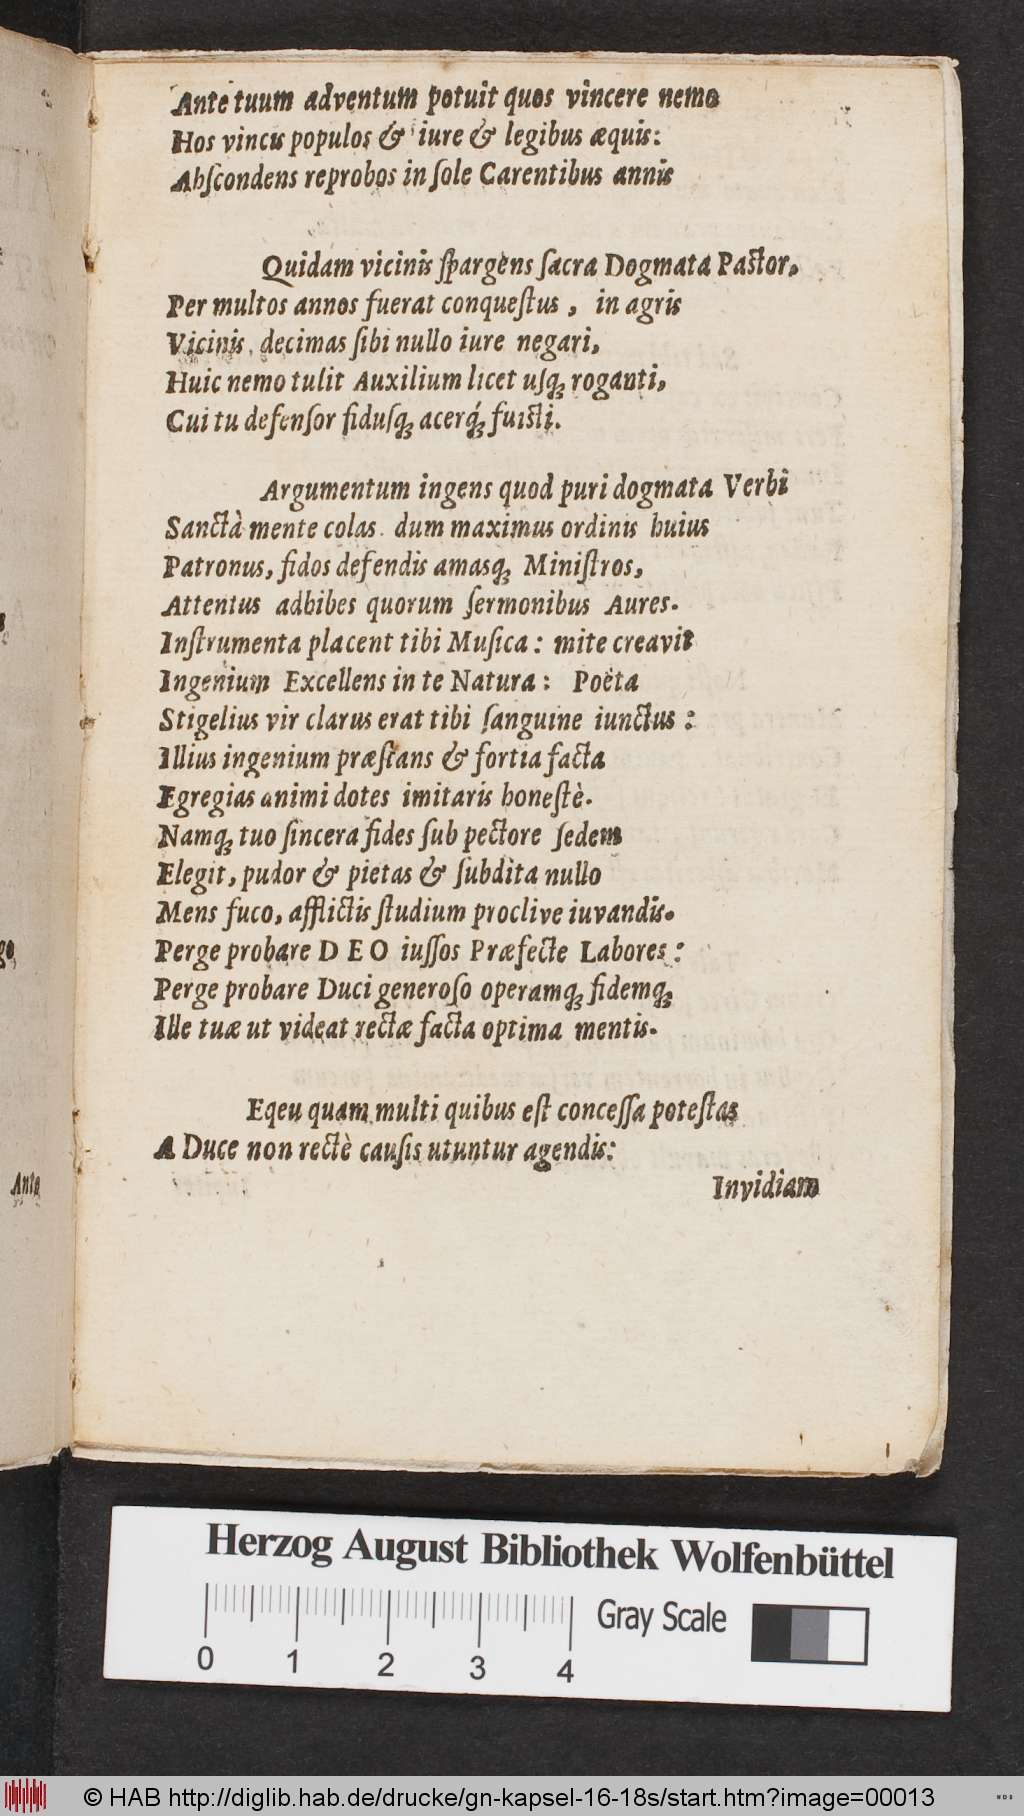 Ante tuum adventum potuit quos vincere nemo
Hos vincis populos & iure & legibus æquis:
Abſcondens reprobos in ſole Carentibus annis
Quidam vicinis ſpargens ſacra Dogmata Paſtor,
Per multos annos fuerat conqueſtus, in agris
Vicinis decimas ſibi nullo iure negari,
Huic nemo tulit Auxilium licet uſq; roganti,
Cui tu defenſor fiduſq; acerq́; fuiſti.
Argumentum ingens quod puri dogmata Verbi
Sanctà mente colas. dum maximus ordinis huius
Patronus, fidos defendis amasq; Miniſtros,
Attentus adhibes quorum ſermonibus Aures.
Inſtrumenta placent tibi Muſica: mite creavit
Ingenium Excellens in te Natura: Poëta
Stigelius vir clarus erat tibi ſanguine iunctus:
Illius ingenium præſtans & fortia facta
Egregias animi dotes imitaris honeſtè.
Namq; tuo ſincera fides ſub pectore ſedem
Elegit, pudor & pietas & ſubdita nullo
Mens fuco, afflictis ſtudium proclive iuvandis.
Perge probare DEO iuſſos Præfecte Labores:
Perge probare Duci generoſo operamq; fidemq;
Ille tuæ ut videat rectæ facta optima mentis.
Eqeu quam multi quibus eſt conceſſa poteſtas
A Duce non rectè cauſis utuntur agendis:
Invidiam
Ante
Herzog August Bibliothek Wolfenbüttel
0 1 2 3 4 Gray Scale
© HAB http://diglib.hab.de/drucke/gn-kapsel-16-18s/start.htm?image=00013